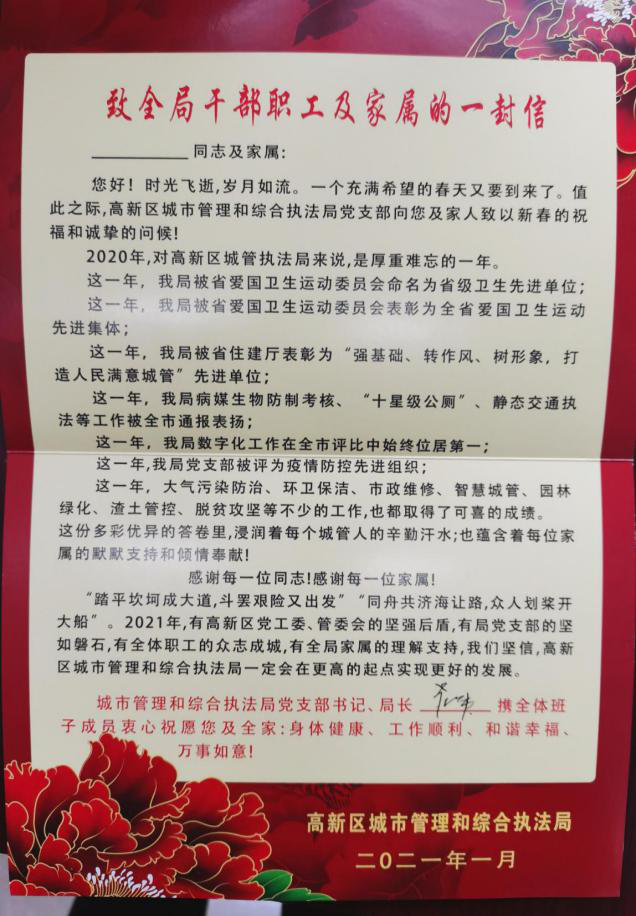 致全局干部职工及家属的一封信
同志及家属:
您好!时光飞逝,岁月如流。一个充满希望的春天又要到来了。值
此之际,高新区城市管理和综合执法局党支部向您及家人致以新春的祝
福和诚挚的问候!
2020年,对高新区城管执法局来说,是厚重难忘的一年。
这一年，我局被省爱国卫生运动委员会命名为省级卫生先进单位;
这一年，我局被省爱国卫生运动委员会表彰为全省爱国卫生运动
先进集体;
这一年，我局被省住建厅表彰为“强基础、转作风、树形象，打
造人民满意城管”先进单位;
这一年，我局病媒生物防制考核、“十星级公厕”、静态交通执
法等工作被全市通报表扬;
这一年，我局数字化工作在全市评比中始终位居第一;
这一年,我局党支部被评为疫情防控先进组织;
这一年，大气污染防治、环卫保洁、市政维修、智慧城管、园林
绿化、渣土管控、脱贫攻坚等不少的工作,也都取得了可喜的成绩。
这份多彩优异的答卷里,浸润着每个城管人的辛勤汗水;也蕴含着每位家
属的默默支持和倾情奉献!
感谢每一位同志!感谢每一位家属!
“踏平坎坷成大道,斗罢艰险又出发”“同舟共济海让路,众人划桨开
大船”。2021年,有高新区党工委、管委会的坚强后盾,有局党支部的坚
如磐石,有全体职工的众志成城,有全局家属的理解支持,我们坚信,高新
区城市管理和综合执法局一定会在更高的起点实现更好的发展。
城市管理和综合执法局党支部书记、局长 携全体班
子成员衷心祝愿您及全家:身体健康、工作顺利、和谐幸福、
万事如意!
高新区城市管理和综合执法局
二〇二一年一月